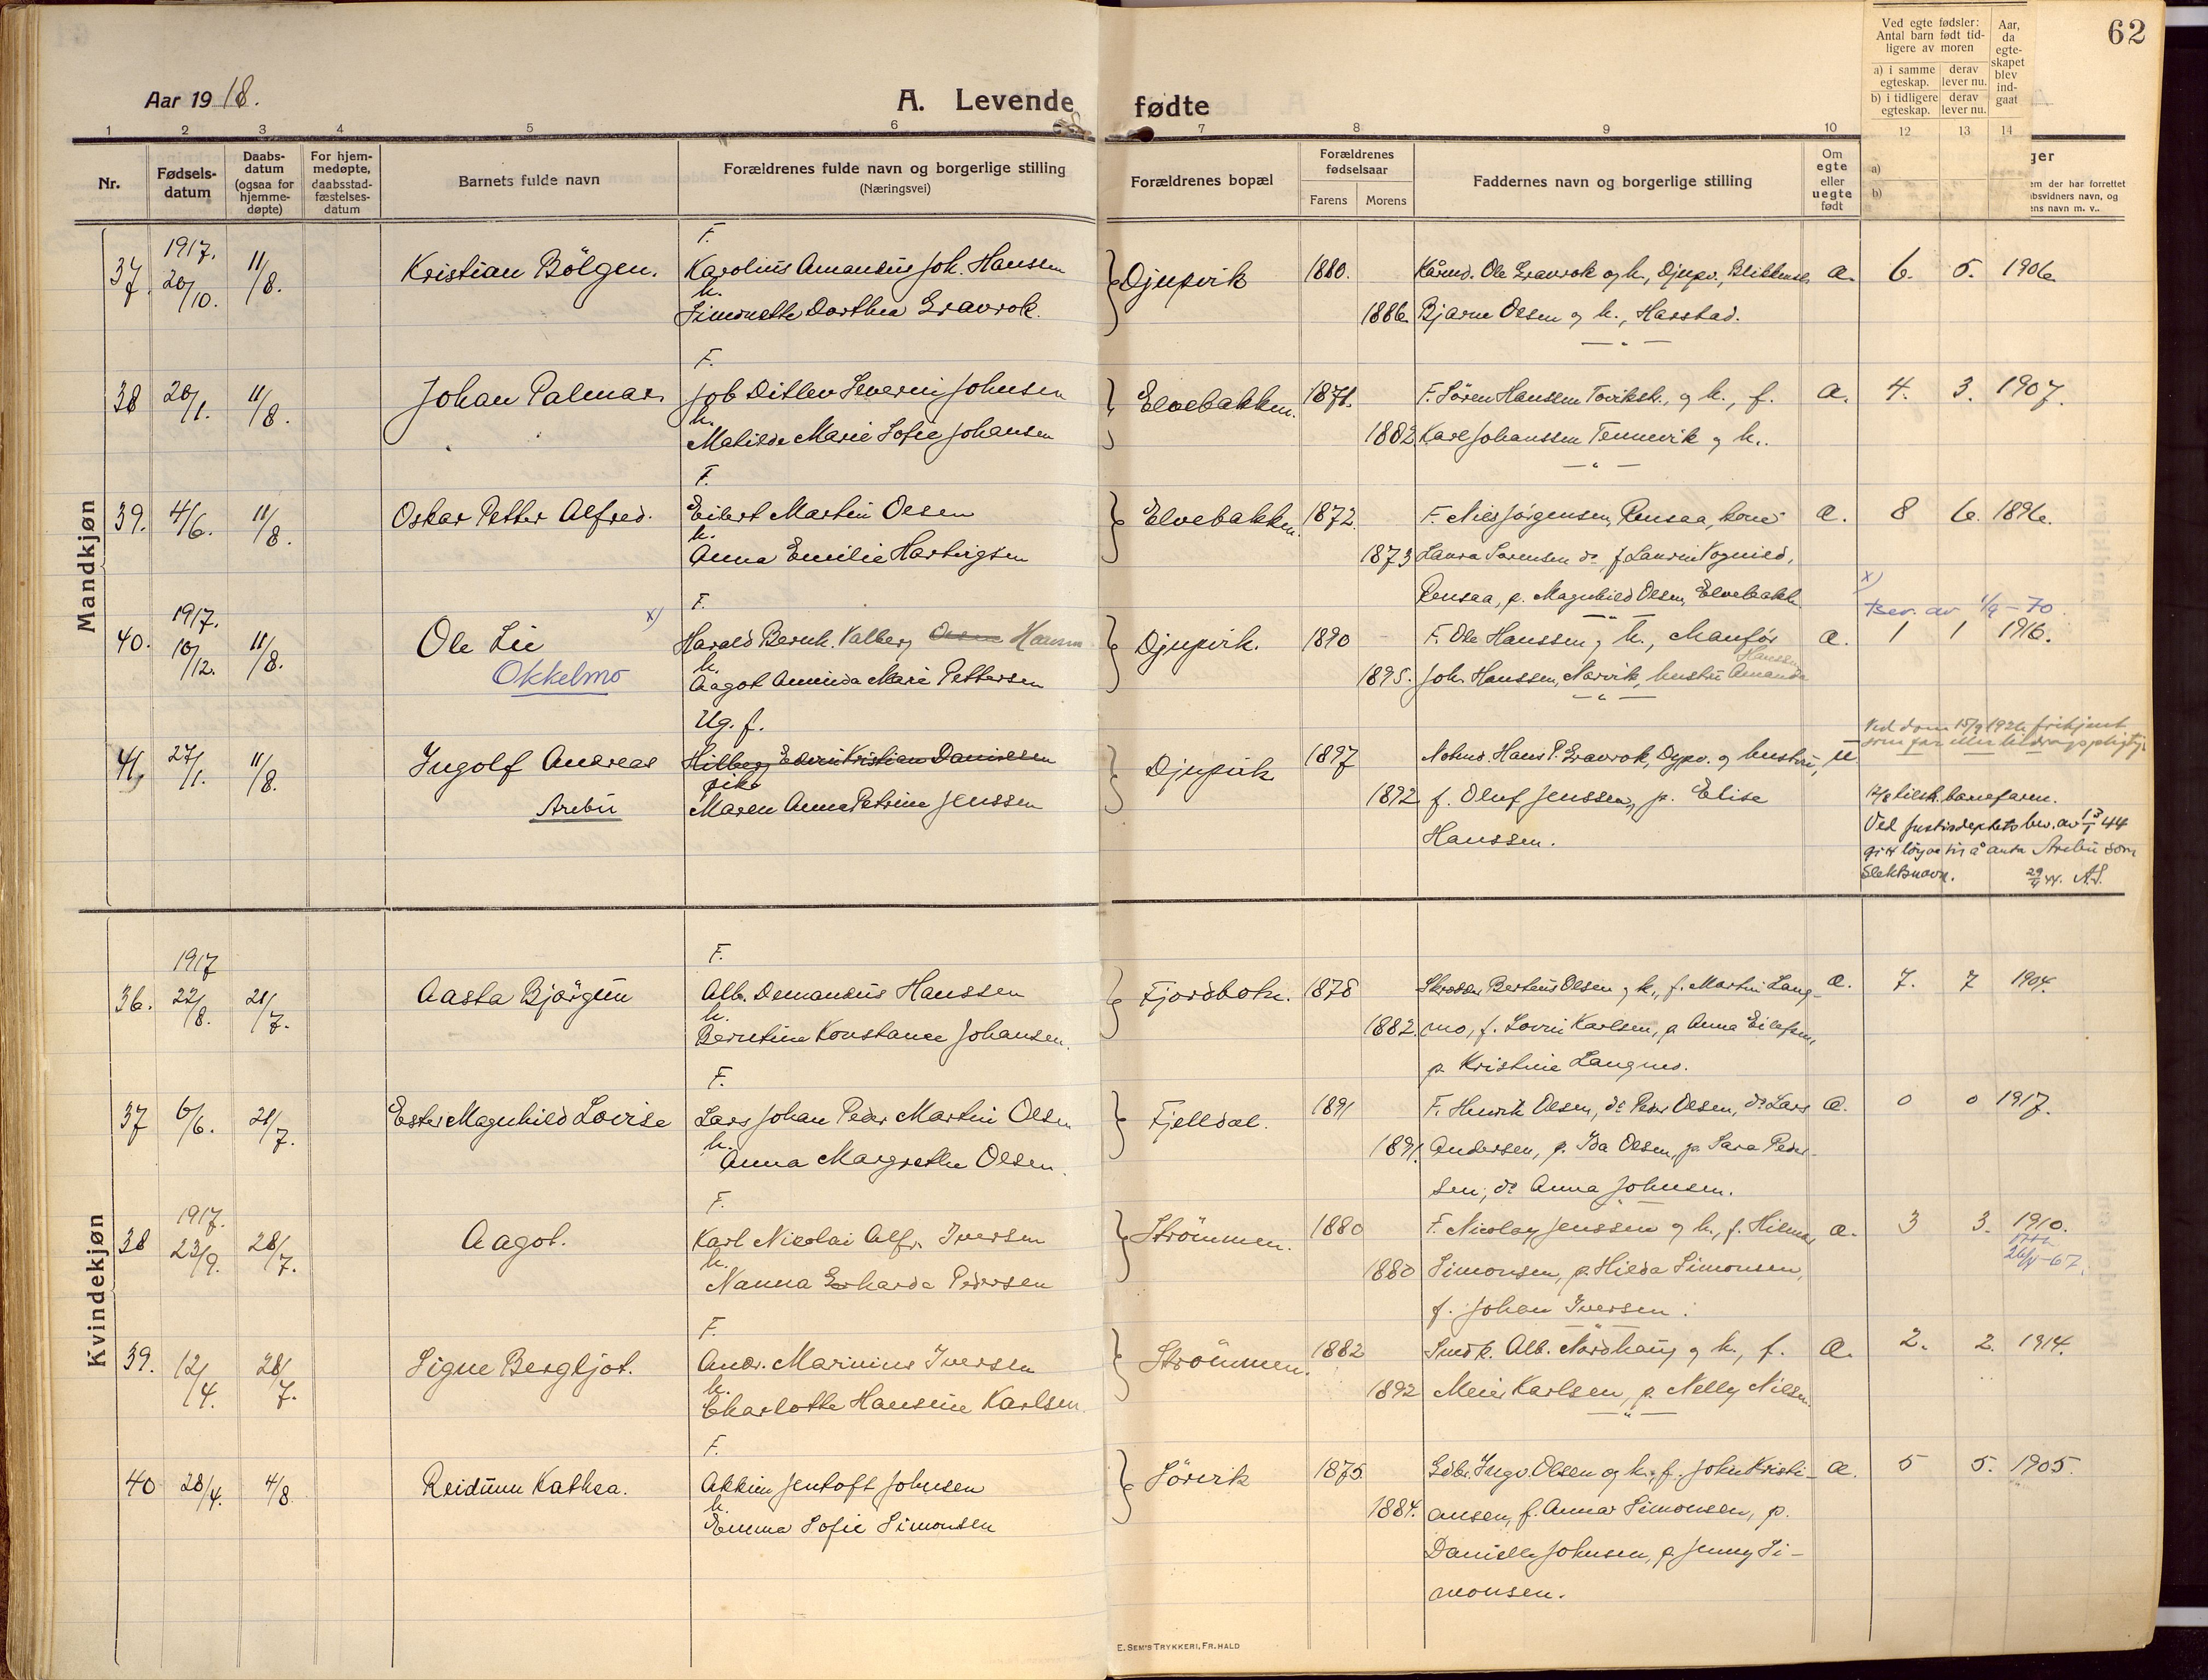 62
Aar 1918.
A. Levende fødte
Ved egte fødsler: Antal barn født tidligere av moren
a) i samme egteskap. derav lever nu.
b) i tidligere egteskap. derav lever nu.
Aar, da egteskapet blev indgaat
1 2 3 4 5 6 7 8 9 10 12 13 14
Nr.
Fødselsdatum
Daabsdatum (ogsaa for hjemmedøpte)
For hjemmedøpte, daabsstadfæstelsesdatum
Barnets fulde navn
Forældrenes fulde navn og borgerlige stilling (Næringsvei)
Forældrenes bopæl
Forældrenes fødselsaar
Farens Morens
Faddernes navn og borgerlige stilling
Om egte eller uegte født
a)
b)
ger
em der har forrettet
bsvidners navn, og
ens navn m. v..
Mandkjøn
1917. F.
37. 20/10. 11/8. Kristian Bölgen. Karolius Amandus Joh. Hanssen Djupvik 1880. Kårmd. Ole Gravrok og h., Djupv., Blikkensl. a. 6. 5. 1906.
h.
Simonette Dorthea Gravrok. 1886. Bjarne Olsen og h., Harstad.
F.
38 20/1. 11/8. Johan Palmar. Job Ditlev Severin Johnsen Elvebakken. 1878. F. Sören Hanssen Tovikstr., og h., f. a. 4. 3. 1907.
h.
Matilde Marie Sofie Johansen 1882 Karl Johanssen Tennevik og h..
F.
39. 4/6. 11/8. Oskar Petter Alfred. Eilert Martin Olsen Elvebakken. 1872. F. Nils Jörgensen, Rensaa, kone a. 8 6. 1896.
h.
Anna Emilie Hartvigsen 1873 Laura Sörensen do, f. Laurin Kogvied,
Rensaa, p. Magnhild Olsen, Elvebakk.
x)
Bev. av 1/9-70
1917. x) F.
40. 10/12. 11/8. Ole Lie Harald Bernh. Valberg Olsen Hanssen Djupvik. 1890 F. Ole Hanssen og h., Manfjor a. 1 1 1916.
Okkelmo h. Hanssen
Aagot Aminda Marie Pettersen 1895. Joh. Hanssen, Narvik, hustru Amanda
Ug. f.
Ved dom 15/9 1926 frikjent
som far eller bidragspligtig.
41, 27/1. 11/8. Ingolf Andreas Hilberg Edvin Kristian Danielsen Djupvik 1897 Nobmd. Hans P. Gravrok, Djupv. og hustru, u.
pike
Arebu Maren Anna Petrine Jenssen 1892 f. Oluf Jenssen, p. Elise
Hanssen.
12/8 tilsk. barnefaren.
Ved Justisdeptets bev. av 13/1 44
gitt löyve til å anta Arebu som
Slektsnavn. 29/4 44. A.S.
Kvindekjøn
1917 F.
36. 22/8. 21/7. Aasta Bjørgun Alb. Demandus Hanssen Fjordbotn. 1878 Skrædder Bertheus Olsen og h., f. Martin Lang- a. 7. 7 1904.
h.
Berntine Konstance Johansen. 1882. mo, f. Lovin Karlsen, p. Anna Eilefsen,
p. Kristine Langmo.
F.
37 6/6. 21/7. Ester Magnhild Lovise Lars Johan Peder Martin Olsen Fjelldal. 1891 F. Henrik Olsen, do Peder Olsen, do Lars a. 0 0 1917.
h.
Anna Margrethe Olsen. 1891. Andersen, p. Ida Olsen, p. Sara Peder-
sen, do Anna Johnsen.
1917. F.
38 23/9. 28/7. Aagot. Karl Nikolai Alfr. Iversen Strömmen. 1880 F. Nicolay Jenssen og h., f. Hilmar a. 3 3. 1910.
26/4-67.
h.
Nanna Erharda Pedersen 1880 Simonsen, p. Hilda Simonsen,
f. Johan Iversen.
F.
39. 12/4. 28/7. Signe Bergljot. Andr. Marinius Iversen Strömmen. 1882 Smed K. Alb. Nordhaug og h., f. a. 2. 2. 1914.
h.
Charlotte Hansine Karlsen. 1892 Meier Karlsen, p. Nelly Nilsen.
F.
40 28/4. 4/8. Reidunn Kathea. Akkim Jentoft Johnsen Sörvik 1875. Gdbr. Ingv. Olsen og h., f. John Kristi- a. 5 5. 1905.
h.
Emma Sofie Simonsen 1884. ansen, f. Annar Simonsen, p.
Danielle Johnsen, p. Jenny Si-
monsen.
E. SEM'S TRYKKERI, FR. HALD